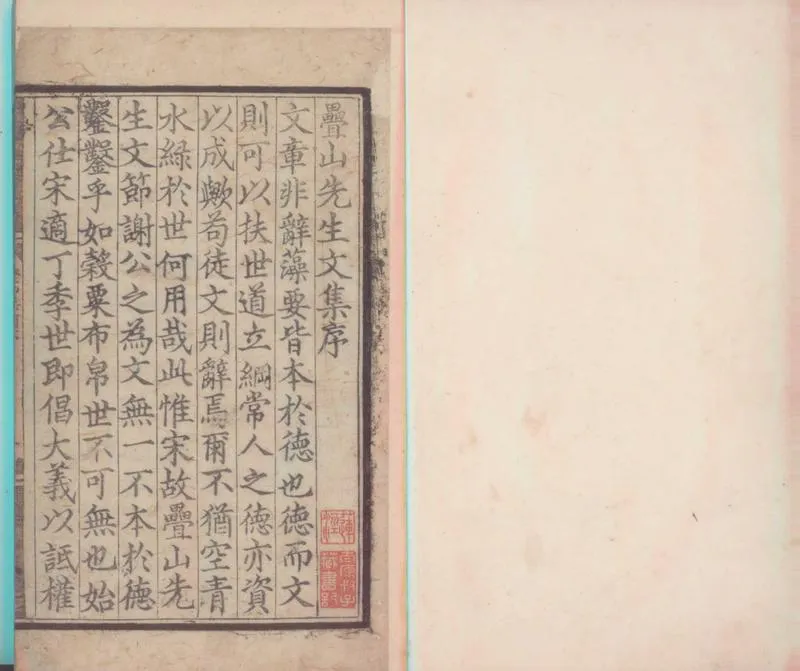 疊山先生文集序
文章非辭藻要皆本於德也德而文
則可以扶世道立綱常人之德亦資
以成歟苟徒文則辭焉爾不猶空青
水綠於世何用哉此惟宋故疊山先
生文節謝公之為文無一不本於德
鑿鑿乎如穀粟布帛世不可無也始
公仕宋適丁季世即倡大義以詆權